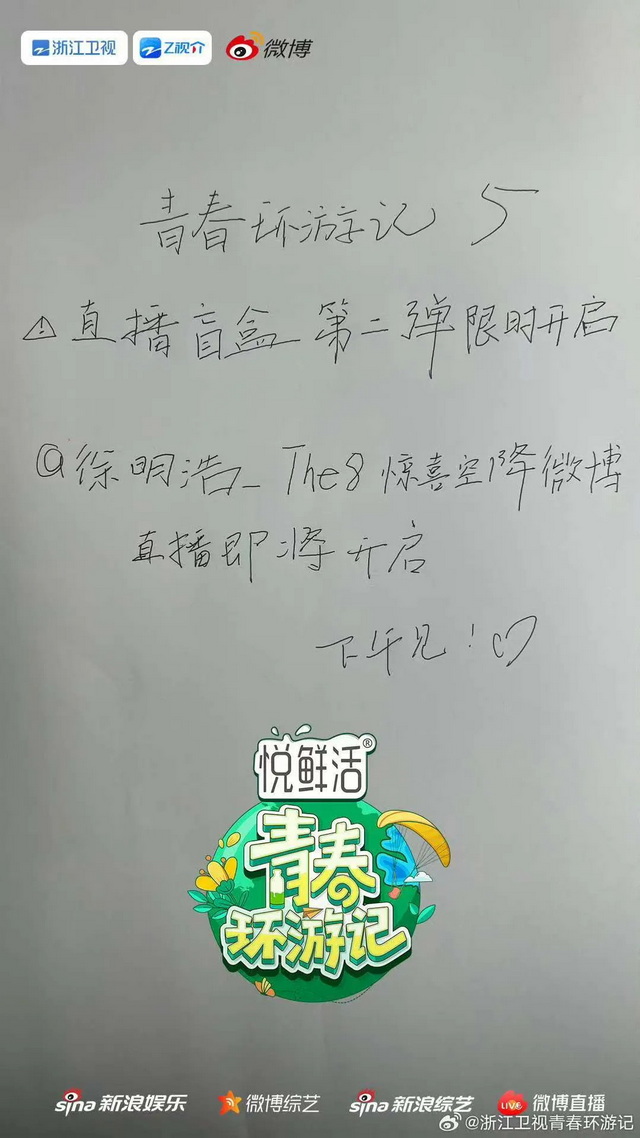 浙江卫视 Z视介 微博
青春环游记 5
⚠直播盲盒 第二弹限时开启
@徐明浩_The8 惊喜空降微博
直播即将开启
下午见!♡
悦鲜活®
青春
环游记
sina 新浪娱乐 微博综艺 sina 新浪综艺 LIVE 微博直播
@浙江卫视青春环游记